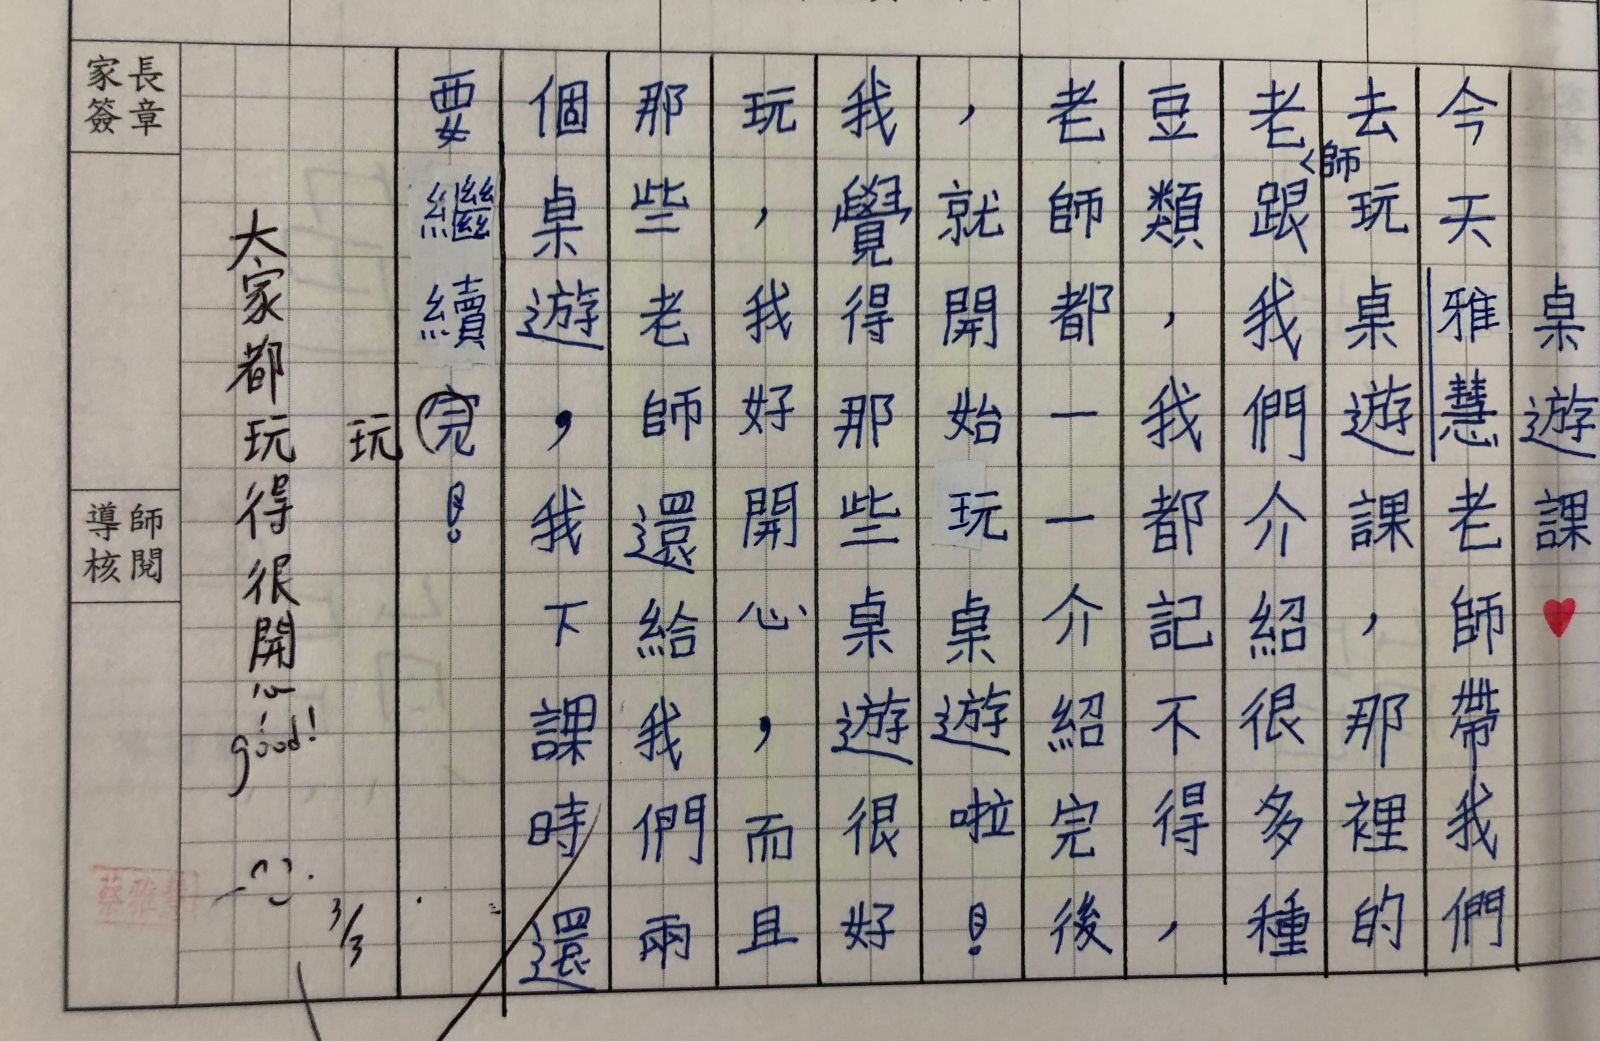 桌遊課
今天雅慧老師帶我們
去玩桌遊課，那裡的
老師跟我們介紹很多種
豆類，我都記不得，
老師都一一介紹完後
，就開始玩桌遊啦！
我覺得那些桌遊很好
玩，我好開心，而且
那些老師還給我們兩
個桌遊，我下課時還
要繼續完！
玩
大家都玩得很開心
good!
3/3
家長簽章
導師核閱
蔡雅慧